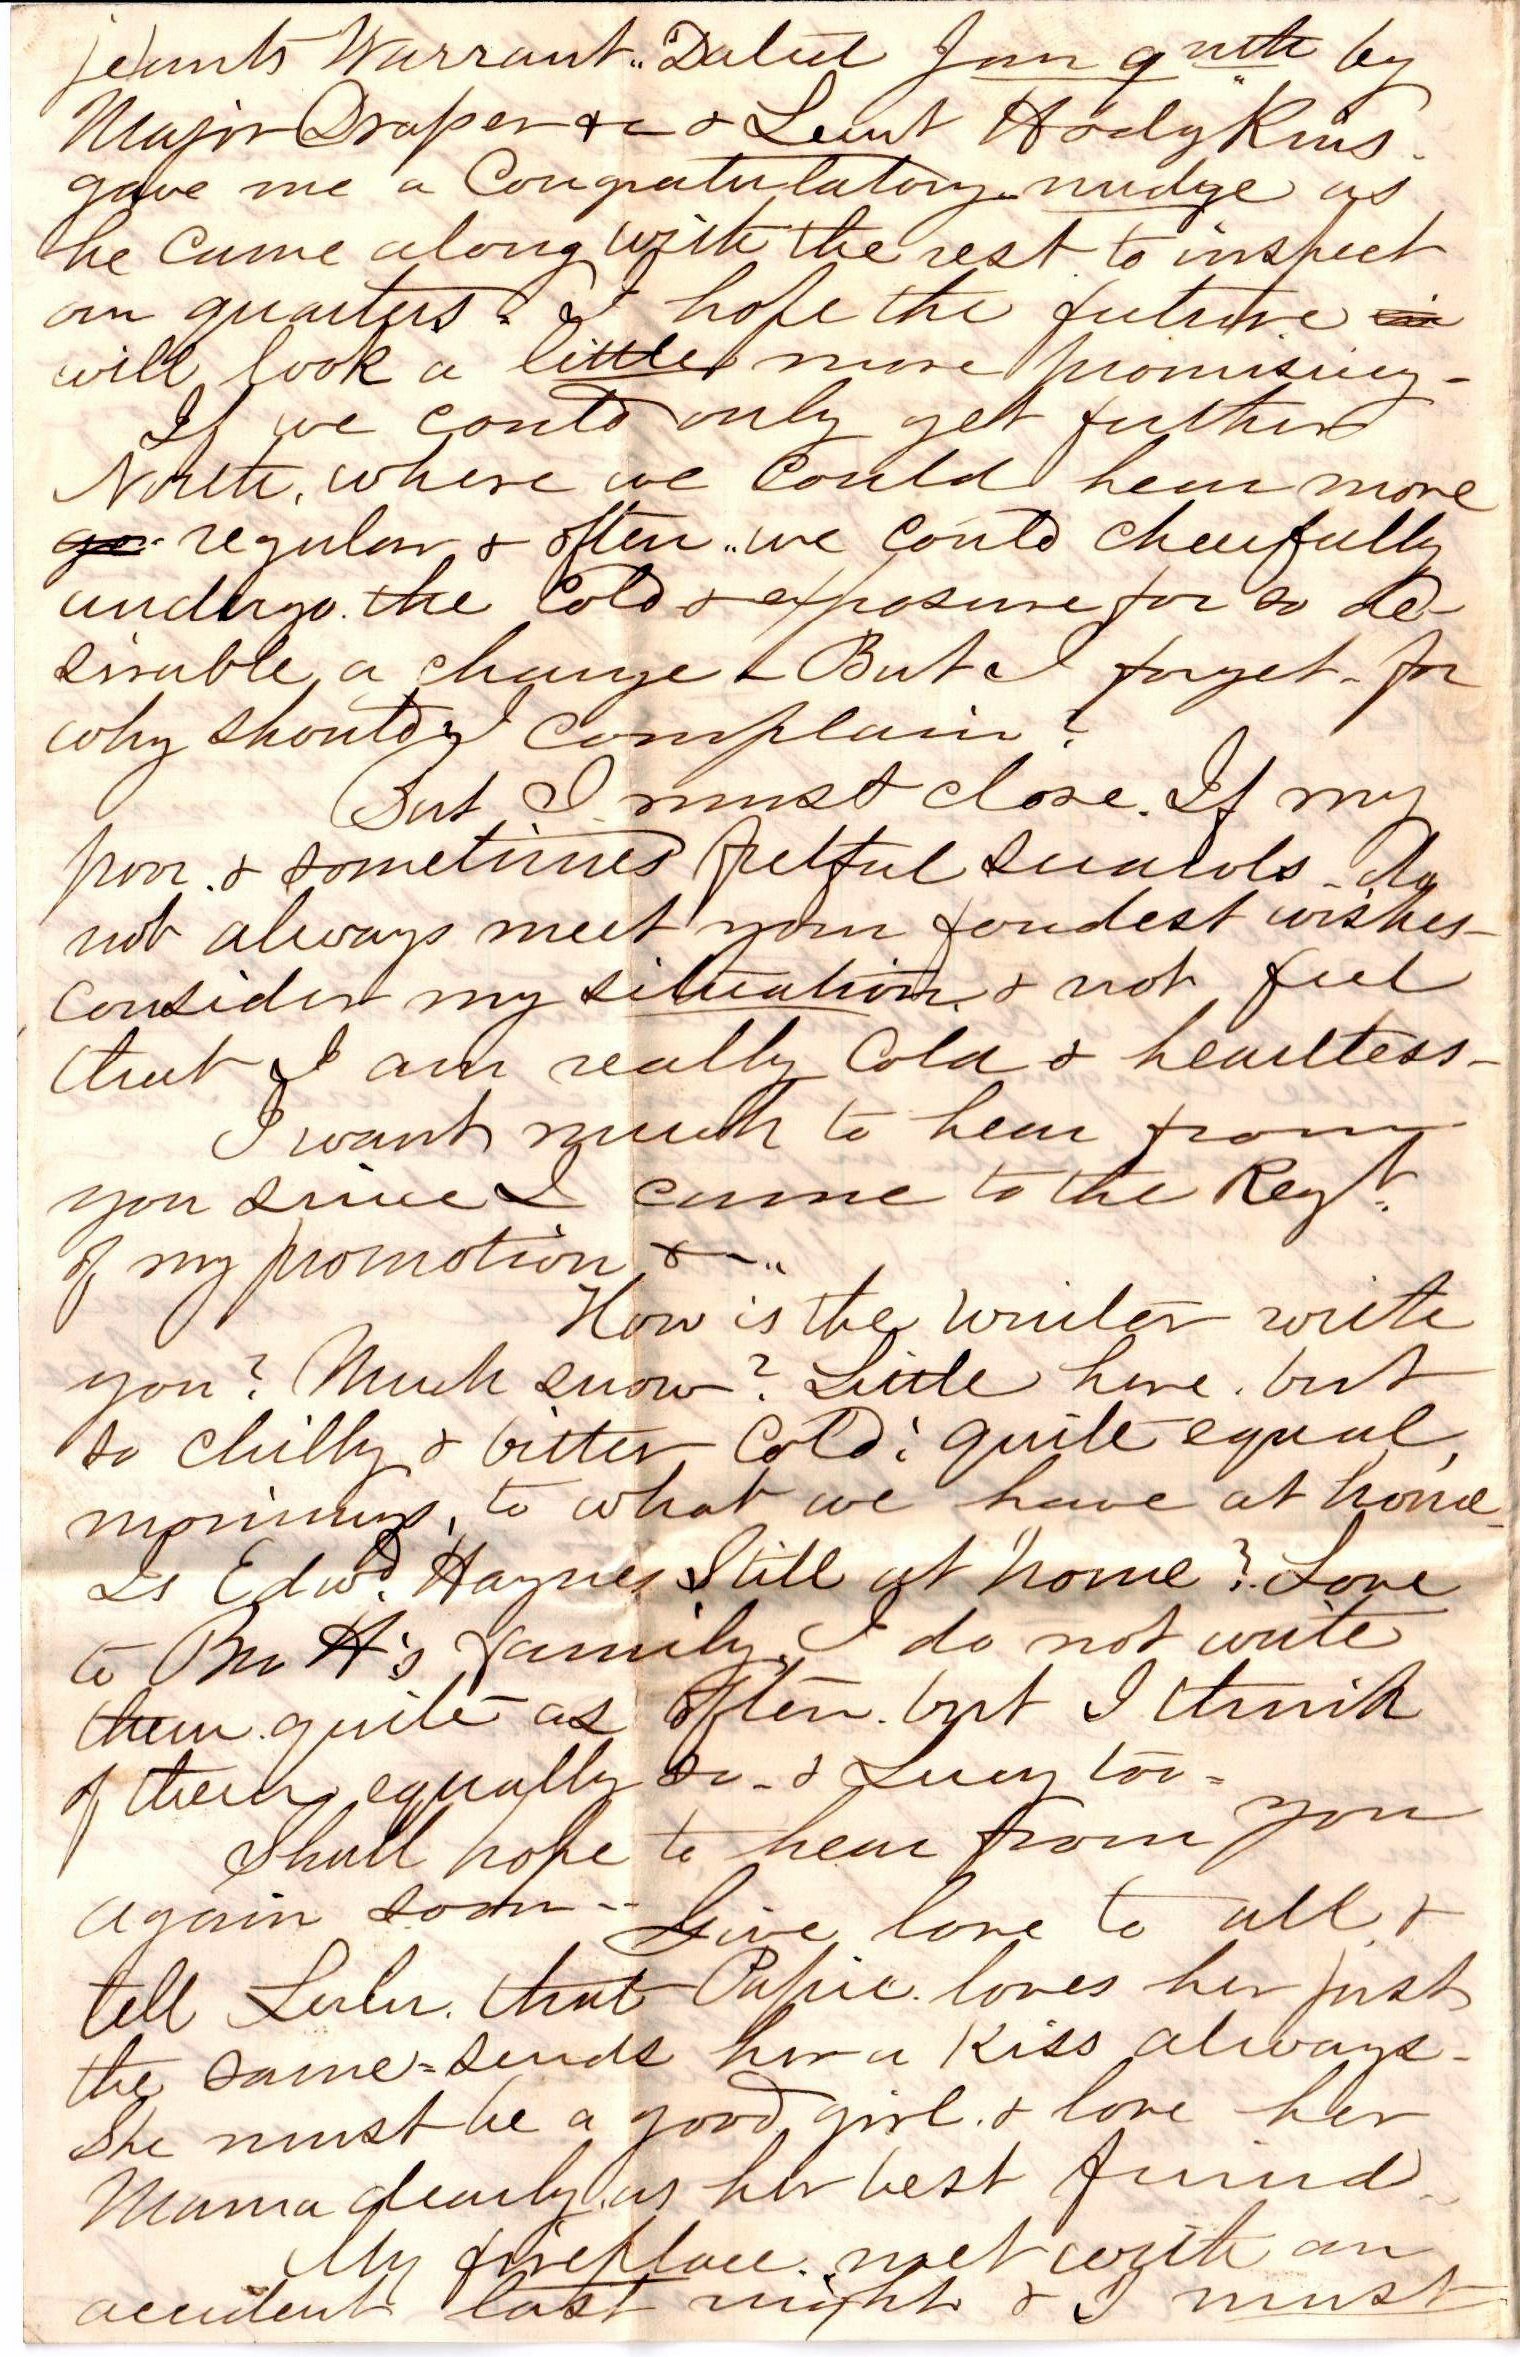 jeants Warrant. Dated Jan 9 nth by
Major Draper &c & Leiut Hodgkins.
gave me a Congratulatory nudge as
he came along with the rest to inspect
our quarters. I hope the future
will look a little more promising -
If we could only get further
North, where we could hear more
regular & often we could cheerfully
undergo the cold & exposure for so de-
sirable a change - But I forget - for
why should I complain?
But I must close. If my
poor & sometimes fretful scrawls - do
not always meet your fondest wishes -
consider my situation & not feel
that I am really cold & heartless -
I want much to hear from
you since I came to the Regt.
of my promotion &c
How is the Winter with
you? Much snow? Little here, but
so chilly & bitter cold; quite equal,
mornings, to what we have at home -
Is Edwd. Haynes still at home? Love
to Bro H's family. I do not write
them quite as often. but I think
of them equally so - & Lucy too -
Shall hope to hear from you
again soon -- Give love to all &
tell Lulu. that Papie loves her just
the same - sends her a Kiss always -
She must be a good girl. & love her
Mama dearly as her best friend -
My fireplace met with an
accident last night & I must